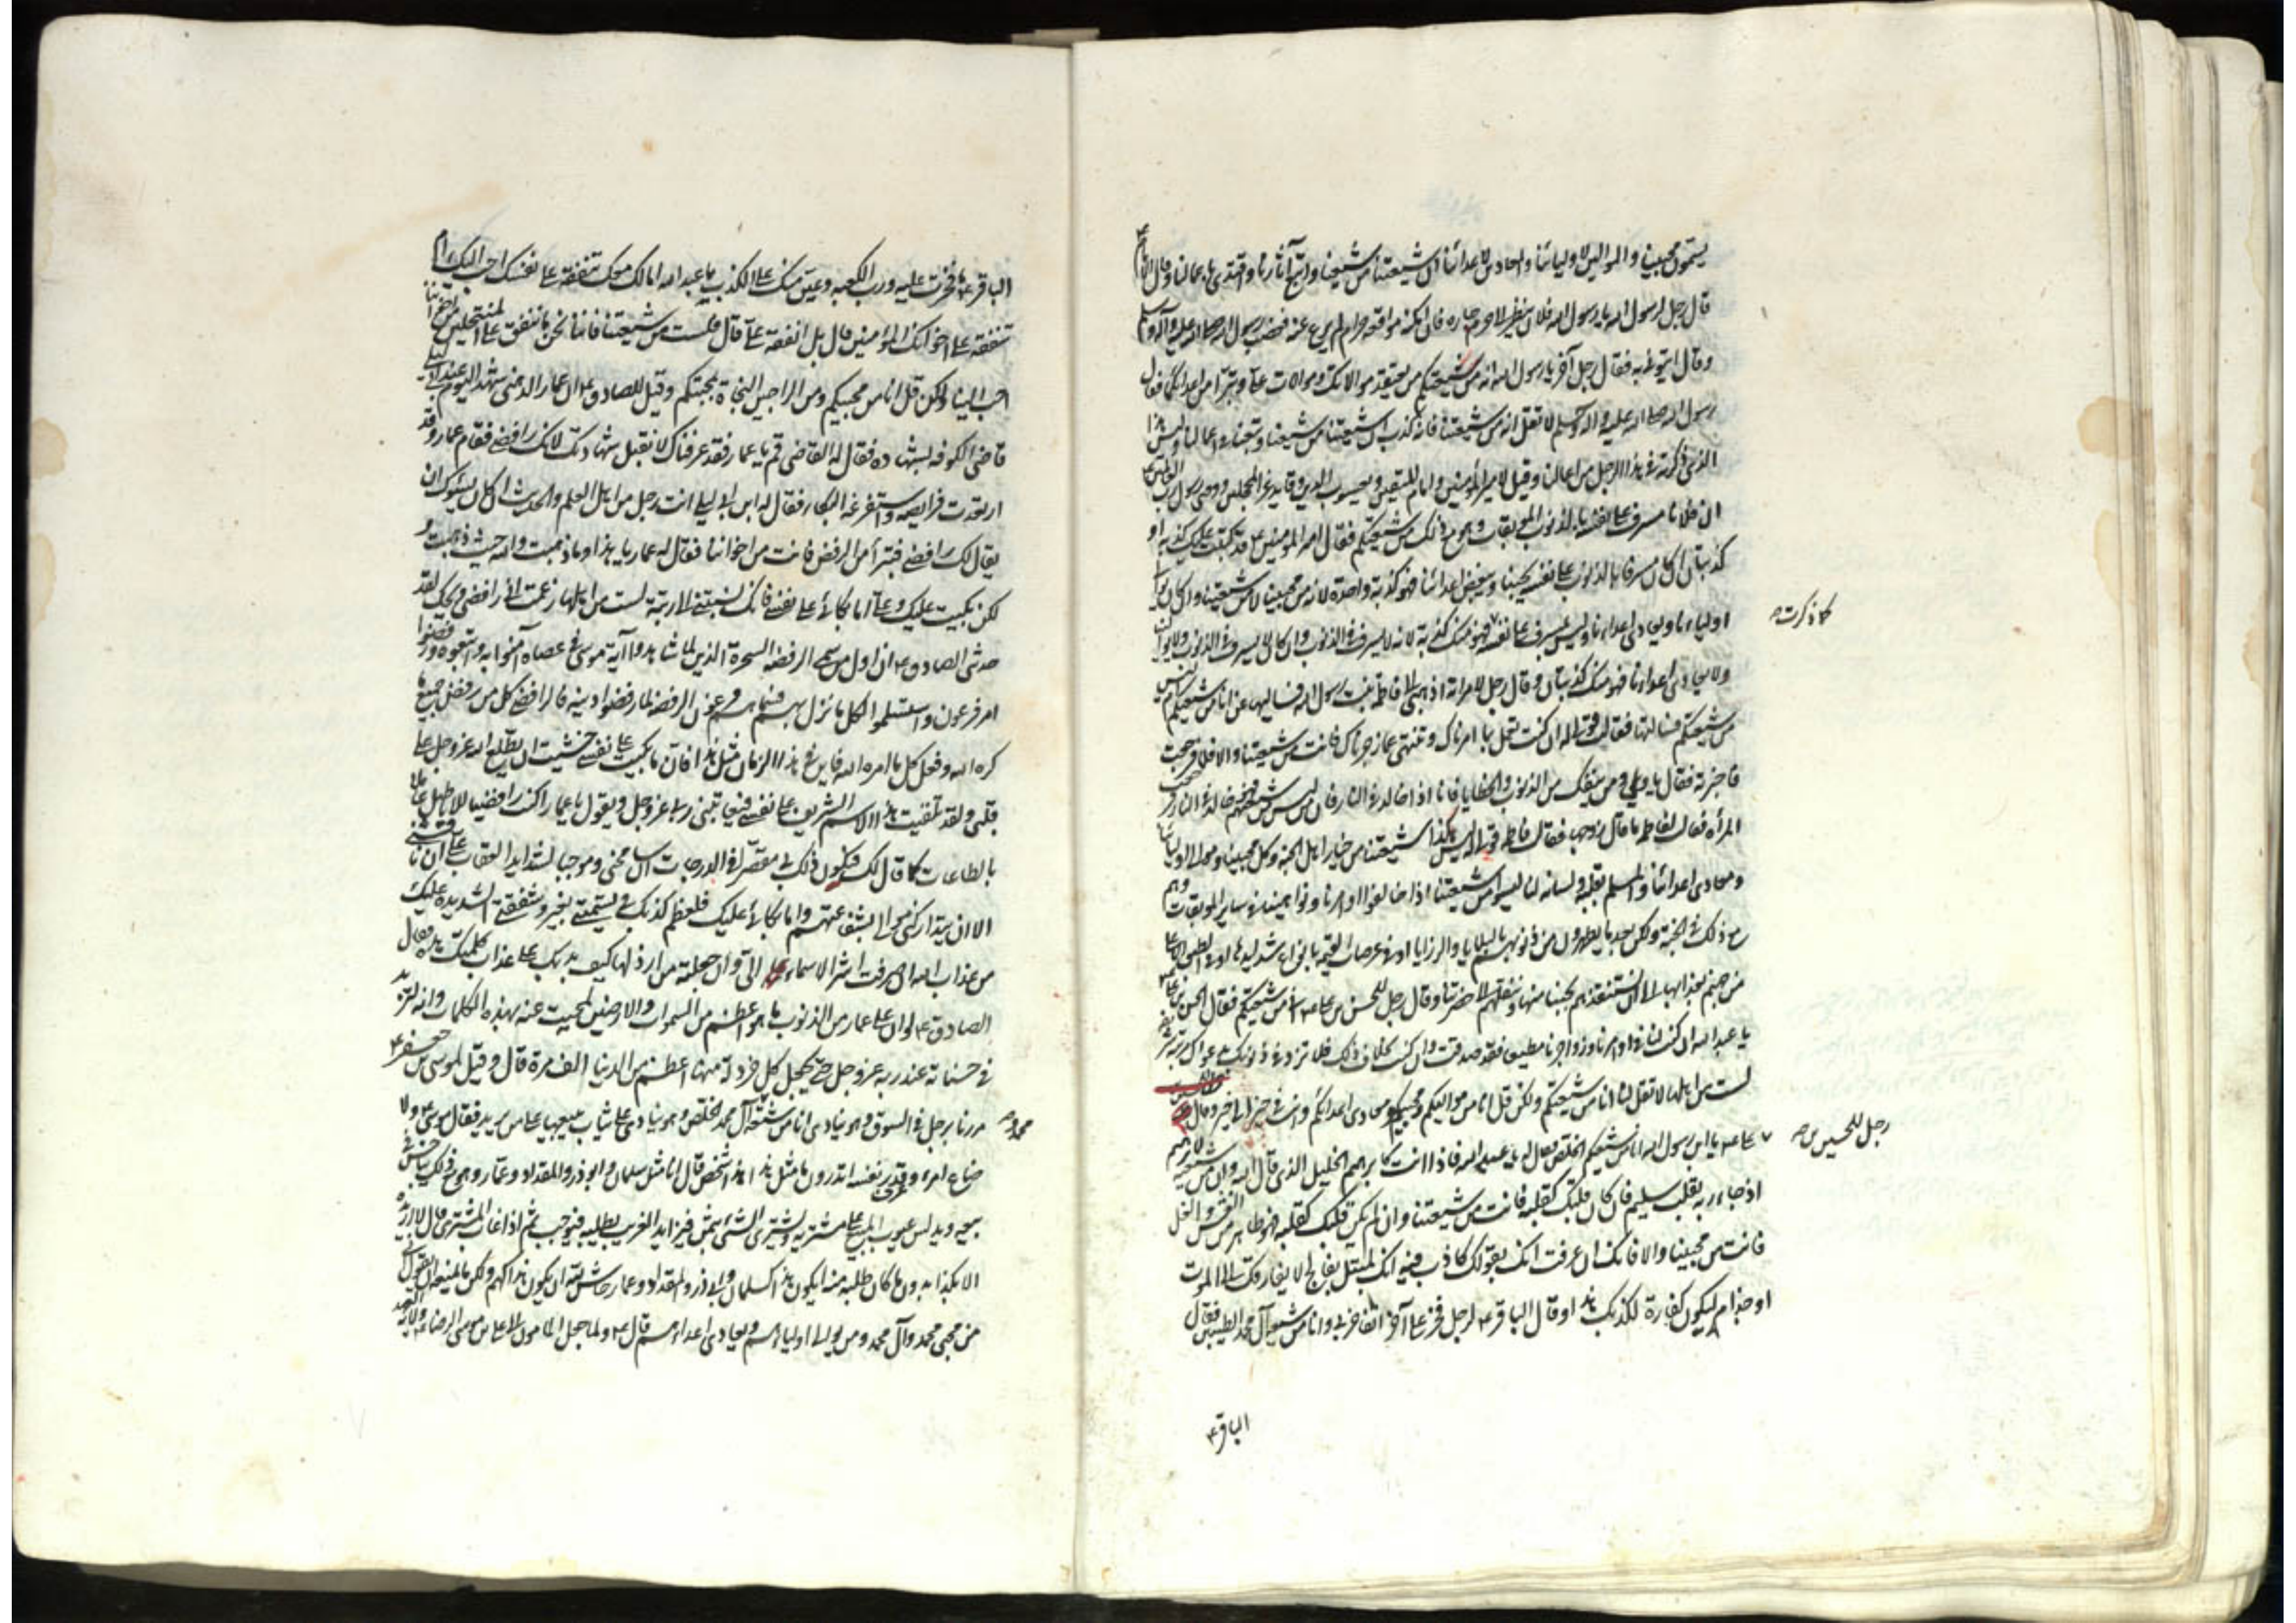 يسمون محبينا والموالين لاوليائنا والمعادين لاعدائنا ان شيعتنا من شيعنا واتبع آثارنا واقتدى باعمالنا وقال الامام ع
قال رجل لرسول الله يا رسول الله فلان ينظر الى حرم جاره فان امكنه مواقعة حرام لم يرع عنه فغضب رسول الله صلى الله عليه وآله وسلم
وقال ايتوني به فقال رجل آخر يا رسول الله انه من شيعتكم ممن يعتقد موالاتك وموالات علي ويتبرأ من اعدائكما فقال
رسول الله صلى الله عليه واله وسلم لا تقل انه من شيعتنا فانه كذب ان شيعتنا من شيعنا وتبعنا في اعمالنا وليس هذا
الذي ذكرته في هذا الرجل من اعمالنا وقيل لامير المؤمنين وامام المتقين ويعسوب الدين وقايد غر المحجلين ووصي رسول رب العالمين
ان فلانا مسرف على نفسه بالذنوب الموبقات وهو مع ذلك من شيعتكم فقال امير المؤمنين ع قد كتبت عليك كذبة او
كذبتان ان كان مسرفا بالذنوب على نفسه يحبنا ويبغض اعدائنا فهو كذبة واحدة لانه من محبينا لا من شيعتنا وان كان يوالي
اولياءنا ويعادي اعداءنا وليس بمسرف على نفسه فهو منك كذبة لانه لا يسرف في الذنوب وان كان لا يسرف في الذنوب ولا يوالينا
كما ذكرت
ولا يعادي اعداءنا فهو منك كذبتان وقال رجل لامراته اذهبي الى فاطمة بنت رسول الله فسليها عني انا من شيعتكم ام ليس
من شيعتكم فسالتها فقالت قولي له ان كنت تعمل بما امرناك وتنتهي عما زجرناك فانت من شيعتنا والا فلا فرجعت
فاخبرته فقال يا ويلي ومن ينفك من الذنوب والخطايا فانا اذا خالد في النار فان من ليس من شيعتهم فهو خالد في النار فرجعت
المرأة فقالت لفاطمة ما قال زوجها فقالت فاطمة قولي له ليس هكذا شيعتنا من خيار اهل الجنة وكل محبينا وموالي اوليائنا
ومعادي اعدائنا والمسلم بقلبه ولسانه لنا ليسوا من شيعتنا اذا خالفوا اوامرنا ونواهينا في ساير الموبقات وهم
مع ذلك في الجنة ولكن بعد ما يطهرون من ذنوبهم بالبلايا والرزايا او في عرصات القيمة بانواع شدائدها او في الطبق الاعلى
من جهنم بعذابها الى ان نستنقذهم بحبنا منها وننقلهم الى حضرتنا وقال رجل للحسن بن علي ع انا من شيعتكم فقال الحسن بن علي ع
يا عبد الله ان كنت لنا في اوامرنا وزواجرنا مطيعا فقد صدقت وان كنت بخلاف ذلك فلا تزد في ذنوبك بدعواك مرتبة شريفة
لست من اهلها لا تقل لنا انا من شيعتكم ولكن قل انا من مواليكم ومحبيكم ومعادي اعدائكم وانت في خير الى خير وقال
رجل للحسين بن
علي ع يا ابن رسول الله انا من شيعتكم الخلص فقال له يا عبد الله فاذا انت كابرهيم الخليل الذي قال الله وان من شيعته لابرهيم
اذ جاء ربه بقلب سليم فان كان قلبك كقلبه فانت من شيعتنا وان لم يكن قلبك كقلبه وهو طاهر من الغش والغل
فانت من محبينا والا فانك ان عرفت انك بقولك كاذب فيه انك لمبتلى بفالج لا يفارقك الى الموت
او جذام ليكون كفارة لكذبك هذا وقال الباقر ع لرجل فخر على آخر اتفاخرني وانا من شيعة آل محمد الطيبين فقال
الباقر ع
الباقر ع ما فخرت عليه ورب الكعبة وغبن منك على الكذب يا عبد الله امالك معك تنفقه على نفسك احب اليك ام
تنفقه على اخوانك المؤمنين قال بل انفقه على قال فلست من شيعتنا فاننا نحن ما ننفق على المنتحلين من اخواننا
احب الينا ولكن قل انا من محبيكم ومن الراجين النجاة بمحبتكم وقيل للصادق ع ان عمار الدهني شهد اليوم عند ابن ابي ليلى
قاضي الكوفه بشهاده فقال له القاضي قم يا عمار فقد عرفناك لا نقبل شهادتك لانك رافضي فقام عمار وقد
ارتعدت فرايصه واستفرغه البكاء فقال له ابن ابي ليلى انت رجل من اهل العلم والحديث ان كان يسؤك ان
يقال لك رافضي فتبرأ من الرفض فانت من اخواننا فقال له عمار يا هذا ما ذهبت والله حيث ذهبت و
لكن بكيت عليك وعلي اما بكائي على نفسي فانك نسبتني الى رتبة لست من اهلها زعمت اني رافضي ويحك لقد
حدثني الصادق ع ان اول من سمي الرفضه السحرة الذين لما شاهدوا آية موسى في عصاه آمنوا به واتبعوه ورفضوا
امر فرعون واستسلموا لكل ما نزل بهم فسماهم فرعون الرفضه لما رفضوا دينه فالرافضي كل من رفض جميع ما
كره الله وفعل كل ما امره الله فاين في هذا الزمان مثل هذا فان ما بكيت على نفسي خشيت ان يطلع الله عز وجل على
قلبي ولقد تلقبت هذا الاسم الشريف على نفسي فيعاتبني ربي عز وجل ويقول يا عمار اكنت رافضيا للاباطيل عاملا
بالطاعات كما قال لك فيكون ذلك بي مقصرا في الدرجات ان سامحني وموجبا لشديد العقاب علي ان ناقشني
الا ان يتداركني موالي بشفاعتهم واما بكائي عليك فلعظم كذبك في تسميتي بغير اسمي وشفقتي الشديدة عليك
من عذاب الله ان صرفت اشرف الاسماء الي وان جعلته من ارذلها كيف يصبر بدنك على عذاب كلمتك هذه فقال
الصادق ع لو ان على عمار من الذنوب ما هو اعظم من السموات والارضين لمحيت عنه بهذه الكلمات وانه لتزيد
في حسناته عند ربه عز وجل حتى يجعل كل خردلة منها اعظم من الدنيا الف مرة قال وقيل لموسى بن جعفر ع
مررنا برجل في السوق وهو ينادي انا من شيعة آل محمد الخلص وهو ينادي على ثياب يبيعها على من يزيد فقال موسى ع ولا
محمد و
ضاع امرء وقدر نفسه اتدرون ما مثل هذا هذا شخص قال انا مثل سلمان وابوذر والمقداد وعمار وهو مع ذلك يباخس في
بيعه ويدلس عيوب المبيع على مشتريه ويشتري الشئ بثمن فيزايد الغريب يطلبه فيوجب ثم اذا غاب المشتري قال لا اريده
الا بكذا بدون ما كان طلبه منه ايكون هذا كسلمان وابي ذر والمقداد وعمار حاش لله ان يكون هذا كهم ولكن ما يمنعه ان يقول اني
من محبي محمد وآل محمد ومن يوالي اولياءهم ويعادي اعداءهم قال ع ولما جعل المامون الى علي بن موسى الرضا ع ولاية العهد